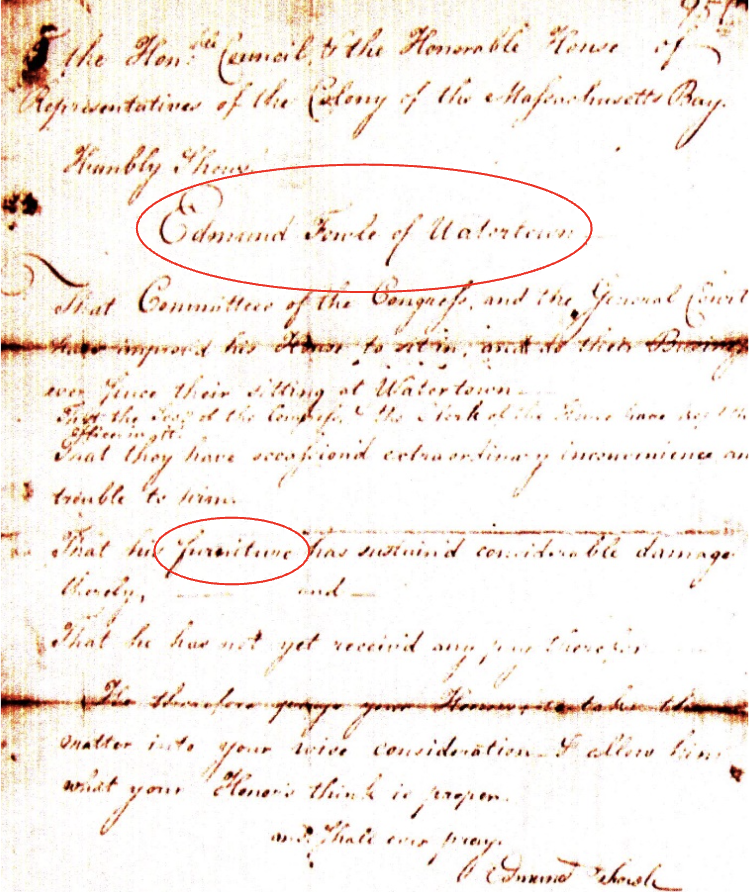 To the Hon.ble Council & the Honorable House of
Representatives of the Colony of the Massachusetts Bay.
Humbly Shows
Edmund Fowle of Watertown
That Committees of the Congress, and the General Court
have improv'd his House to sit in, and do their Business
ever since their sitting at Watertown
That the Secy of the Congress & the Clerk of the House have kept their
Office in it.
That they have occasion'd extraordinary inconvenience an
trouble to him.
That his furniture has sustain'd considerable damage
thereby, and
That he has not yet receiv'd any pay therefor
He therefore prays your Honors to take this
matter into your wise consideration & allow him
what your Honors think is proper.
and shall ever pray.
Edmund Fowle